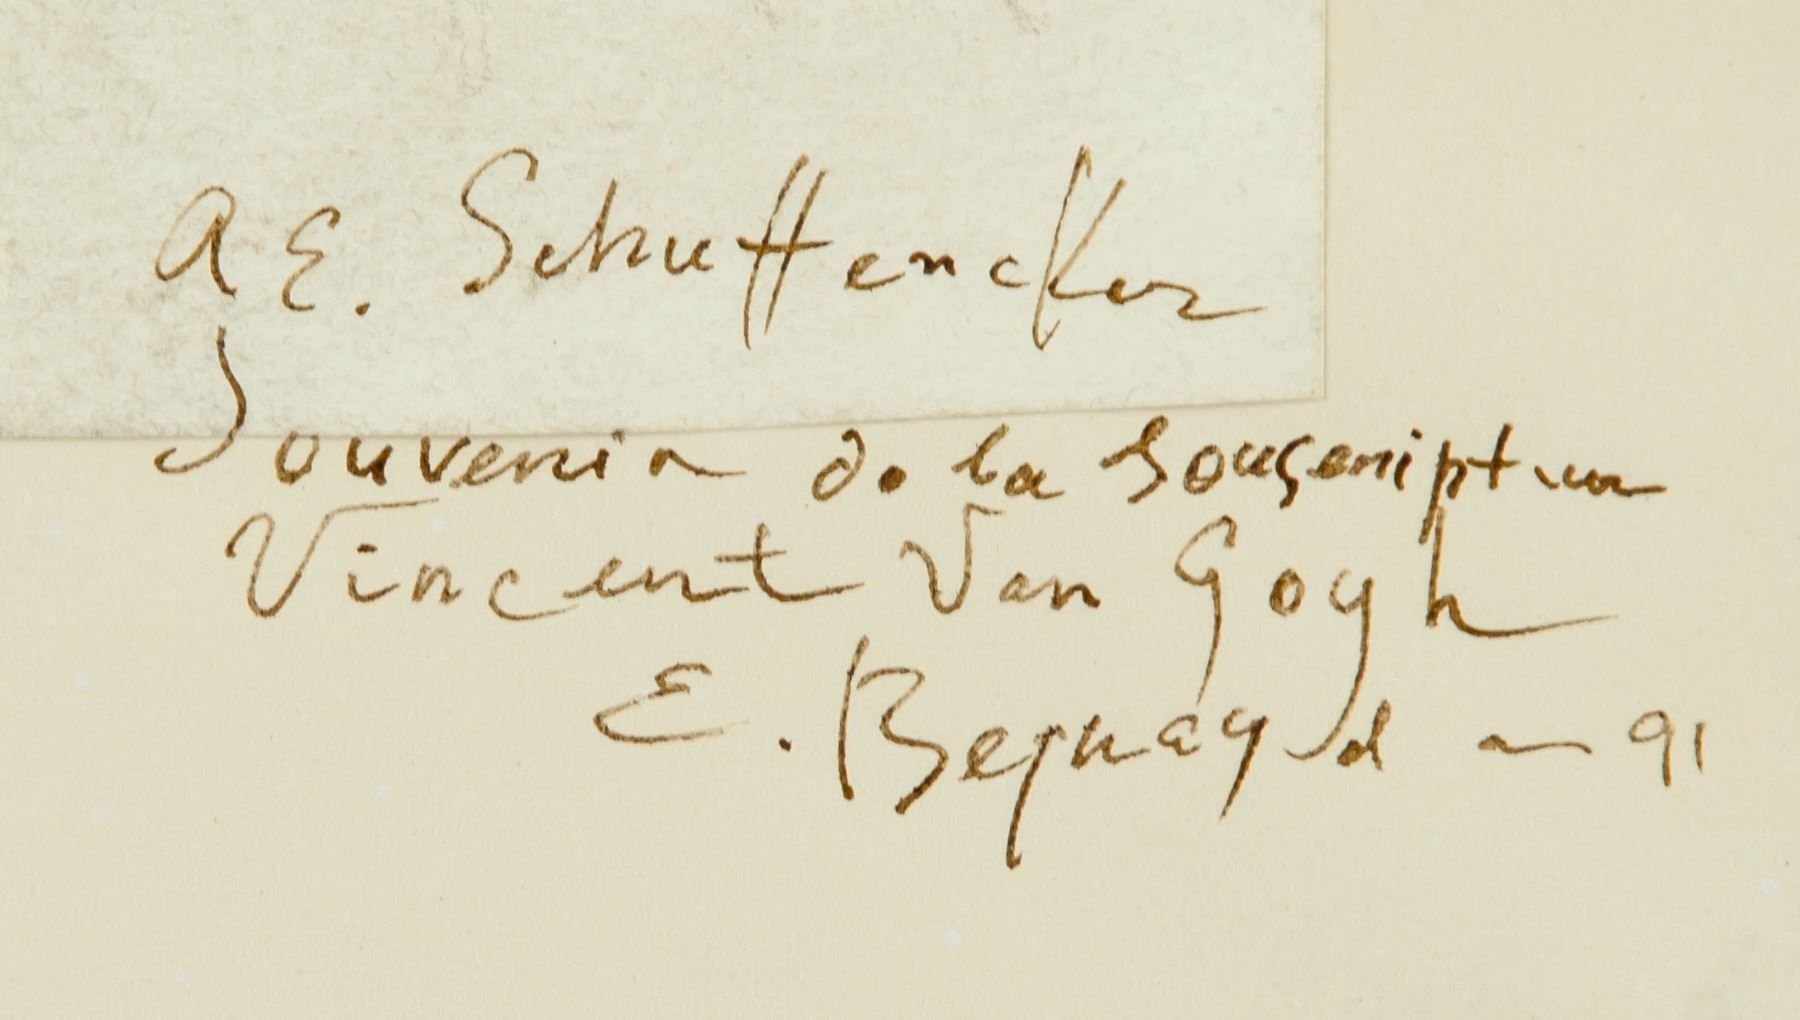 A E. Schuffenecker
Souvenir de la Souscription
Vincent Van Gogh
E. Bernard - 91